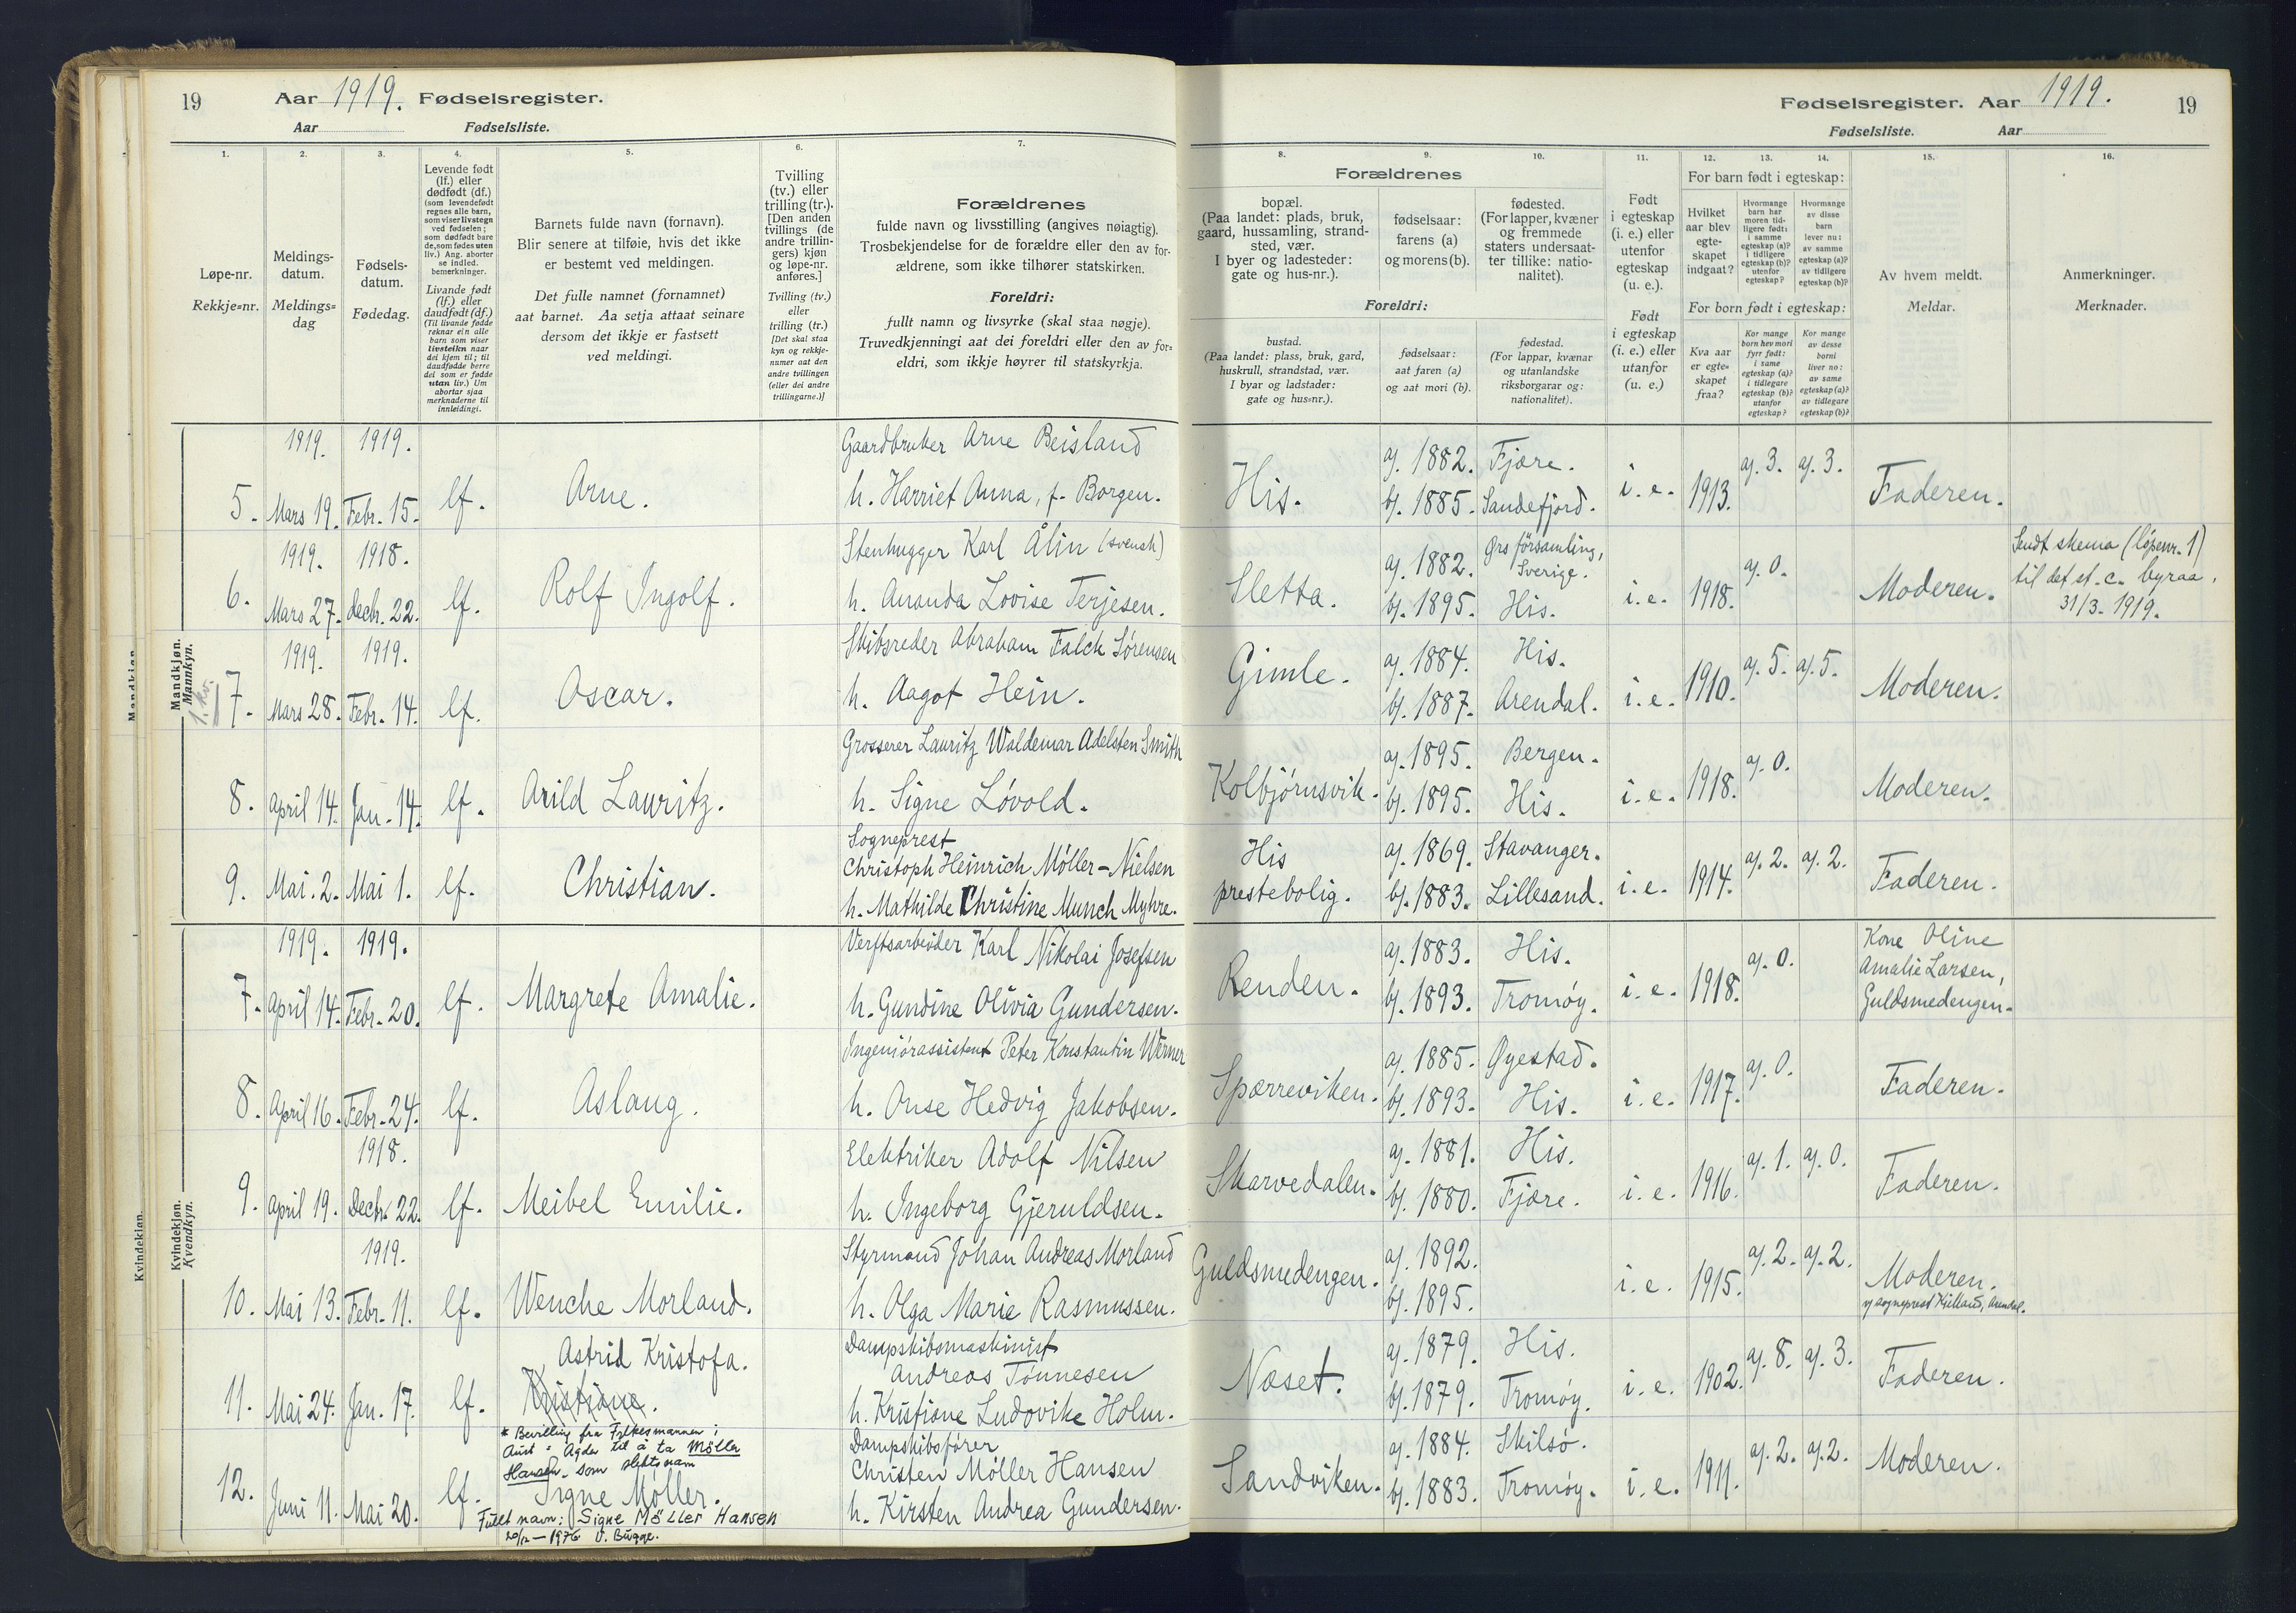 19 Aar 1919. Fødselsregister.
Aar Fødselsliste.
Fødselsregister. Aar 1919. 19
Fødselsliste. Aar
1.
Løpe-nr.
Rekkje=nr.
2.
Meldings-
datum.
Meldings=
dag
3.
Fødsels-
datum.
Fødedag.
4.
Levende født
(lf.) eller
dødfødt (df.)
(som levendefødt
regnes alle barn,
som viser livstegn
ved fødselen;
som dødfødt bare
de, som fødes uten
liv.) Ang. aborter
se indled.
bemerkninger.
Livande født
(lf.) eller
daudfødt (df.)
(Til livande fødde
reknar ein alle
barn som viser
livsteikn naar
dei kjem til; til
daudfødde berre
dei som er fødde
utan liv.) Um
abortar sjaa
merknaderne til
innleidingi.
5.
Barnets fulde navn (fornavn).
Blir senere at tilføie, hvis det ikke
er bestemt ved meldingen.
Det fulle namnet (fornamnet)
aat barnet. Aa setja attaat seinare
dersom det ikkje er fastsett
ved meldingi.
6.
Tvilling
(tv.) eller
trilling (tr.).
[Den anden
tvillings (de
andre trillin-
gers) kjøn
og løpe-nr.
anføres.]
Tvilling (tv.)
eller
trilling (tr.)
[Det skal staa
kyn og rekkje-
numer aat den
andre tvillingen
(eller dei andre
trillingarne.)]
7.
Forældrenes
fulde navn og livsstilling (angives nøiagtig).
Trosbekjendelse for de forældre eller den av for-
ældrene, som ikke tilhører statskirken.
Foreldri:
fullt namn og livsyrke (skal staa nøgje).
Truvedkjenningi aat dei foreldri eller den av for=
eldri, som ikkje høyrer til statskyrkja.
Forældrenes
8.
bopæl.
(Paa landet: plads, bruk,
gaard, hussamling, strand-
sted, vær.
I byer og ladesteder:
gate og hus-nr.).
9.
fødselsaar:
farens (a)
og morens (b).
10.
fødested.
(For lapper, kvæner
og fremmede
staters undersaat-
ter tillike: natio-
nalitet).
Foreldri:
bustad.
(Paa landet: plass, bruk, gard,
huskrull, strandstad, vær.
I byar og ladstader:
gate og hus=nr.).
fødselsaar:
aat faren (a)
og aat mori (b).
fødestad.
(For lappar, kvænar
og utanlandske
riksborgarar og:
nationalitet).
11.
Født
i egteskap
(i. e.) eller
utenfor
egteskap
(u. e.).
Født
i egteskap
(i. e.) eller
utanfor
(u. e.)
For barn født i egteskap:
12.
Hvilket
aar blev
egte-
skapet
indgaat?
13.
Hvormange
barn har
moren tid-
ligere født:
i samme
egteskap (a)?
i tidligere
egteskap (b)?
utenfor
egteskap?
14.
Hvormange
av disse
barn
lever nu:
av samme
egteskap (a)?
av tidligere
egteskap (b)?
For born født i egteskap:
Kva aar
er egte=
skapet
fraa?
Kor mange
born hev mori
fyrr født:
i same
egteskap (a)?
i tidlegare
egteskap (b)?
utanfor
egteskap?
Kor mange
av desse
borni
liver no:
av same
egteskap (a)?
av tidlegare
egteskap (b)?
15.
Av hvem meldt.
Meldar.
16.
Anmerkninger.
Merknader.
Mandkjøn.
Mannkyn.
1919. 1919. Gaardbruker Arne Beisland a). 1882. Fjære. a). 3. a). 3.
5. Mars 19. Febr. 15. lf. Arne. h. Harriet Anna, f. Borgen. His. b). 1885. Sandefjord. i. e. 1913. Faderen.
1919. 1918. Stenhugger Karl Ålin (svensk) a). 1882. Ørs församling, Sverige. a). 0. Sendt skema (løpenr. 1)
6. Mars 27. Decbr. 22. lf. Rolf Ingolf. h. Ananda Lovise Terjesen. Sletta. b). 1895. His. i. e. 1918. Moderen. til det st. c. byraa. 31/3 - 1919.
1919. 1919. Skibsreder Abraham Falck Sørensen a). 1884. His. a). 5. a). 5.
1. kv.
7. Mars 28. Febr. 14. lf. Oscar. h. Aagot Hein. Gimle. b). 1887. Arendal. i. e. 1910. Moderen.
Grosserer Lauritz Waldemar Adelsten Smith a). 1895. Bergen. a). 0.
8. April 14. Jan. 14. lf. Arild Lauritz. h. Signe Løvold. Kolbjørnsvik. b). 1895. His. i. e. 1918. Moderen.
Sogneprest
Christoph Heinrich Møller-Nielsen His a). 1869. Stavanger. a). 2. a). 2.
9. Mai. 2. Mai 1. lf. Christian. h. Mathilde Christine Munch Myhre. prestebolig. b). 1883. Lillesand. i. e. 1914. Faderen.
Kvindekjøn.
Kvendkyn.
1919. 1919. Verftsarbeider Karl Nikolai Josefsen a). 1883. His. a). 0. Kone Oline
7. April 14. Febr. 20. lf. Margrete Amalie. h. Gundine Olivia Gundersen. Renden. b). 1893. Tromøy. i. e. 1918. Amalie Larsen, Guldsmedengen.
Ingeniørassistent Peter Konstantin Werner a). 1885. Øyestad. a). 0.
8. April 16. Febr. 24. lf. Aslaug. h. Onse Hedvig Jakobsen. Spærreviken. b). 1893. His. i. e. 1917. Faderen.
1918. Elektriker Adolf Nilsen a). 1881. His. a). 1. a). 0.
9. April 19. Decbr. 22. lf. Meibel Emilie. h. Ingeborg Gjeruldsen. Skarvedalen. b). 1880. Fjære. i. e. 1916. Faderen.
1919. Styrmand Johan Andreas Morland a). 1892. a). 2. a). 2.
10. Mai 13. Febr. 11. lf. Wenche Morland. h. Olga Marie Rasmussen. Guldsmedengen. b). 1895. i. e. 1915. Moderen.
v/ sogneprest Kielland, Arendal.
Astrid Kristofa. Dampskibsmaskinist
Andreas Tønnesen a). 1879. His. a). 8. a). 3.
11. Mai 24. Jan. 17. lf. Kristiane. h. Kristiane Ludovike Holm. Næset. b). 1879. Tromøy. i. e. 1902. Faderen.
* Bevilling fra Fylkesmannen i
Aust-Agder til å ta Møller
Hansen som slektsnavn
Dampskibsfører
Christen Møller Hansen a). 1884. Skilsø. a). 2. a). 2.
12. Juni 11. Mai 20. lf. Signe Møller. h. Kirsten Andrea Gundersen. Sandviken. b). 1883. Tromøy. i. e. 1911. Moderen.
Fullt navn: Signe Möller Hansen
20/12 - 1976 O. Bugge.
Mandkjøn.
Kvindekjøn.